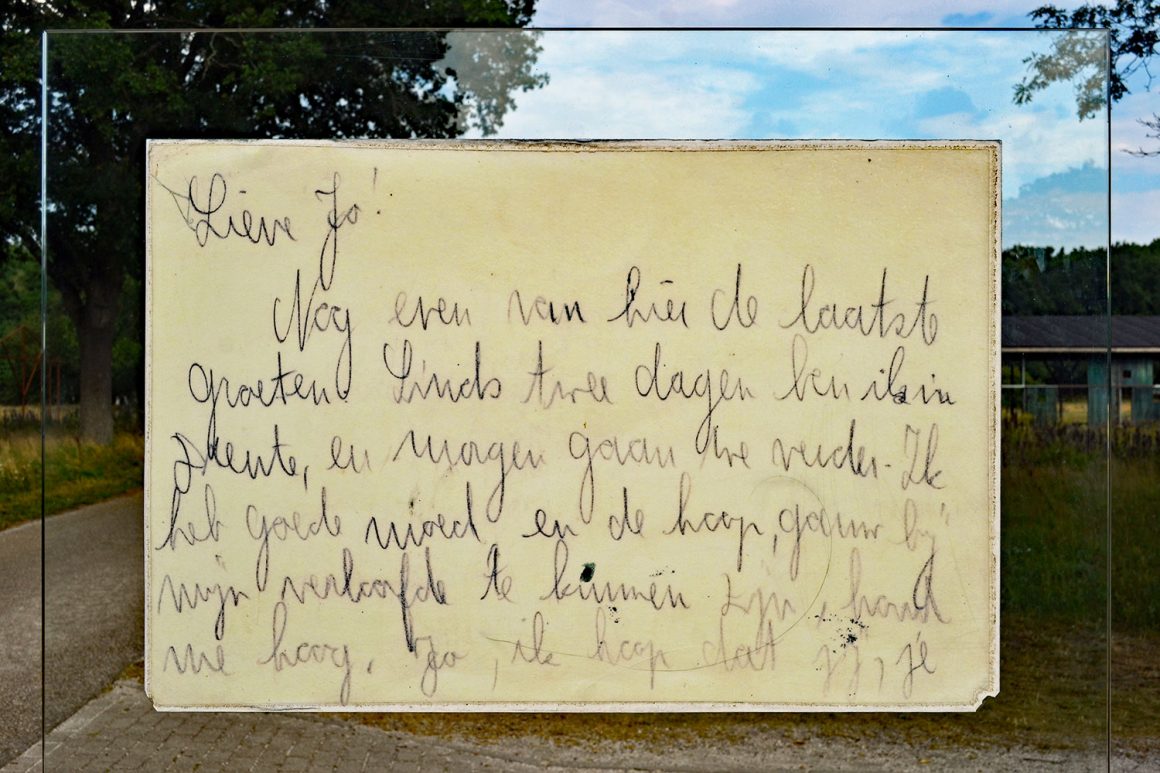 Lieve Jo!
Nog even van hier de laatste
groeten. Sinds twee dagen ben ik in
Drente, en morgen gaan we verder. Ik
heb goede moed en de hoop, gauw bij
mijn verloofde te kunnen zijn, houd
me hoog. Jo, ik hoop dat jij, je